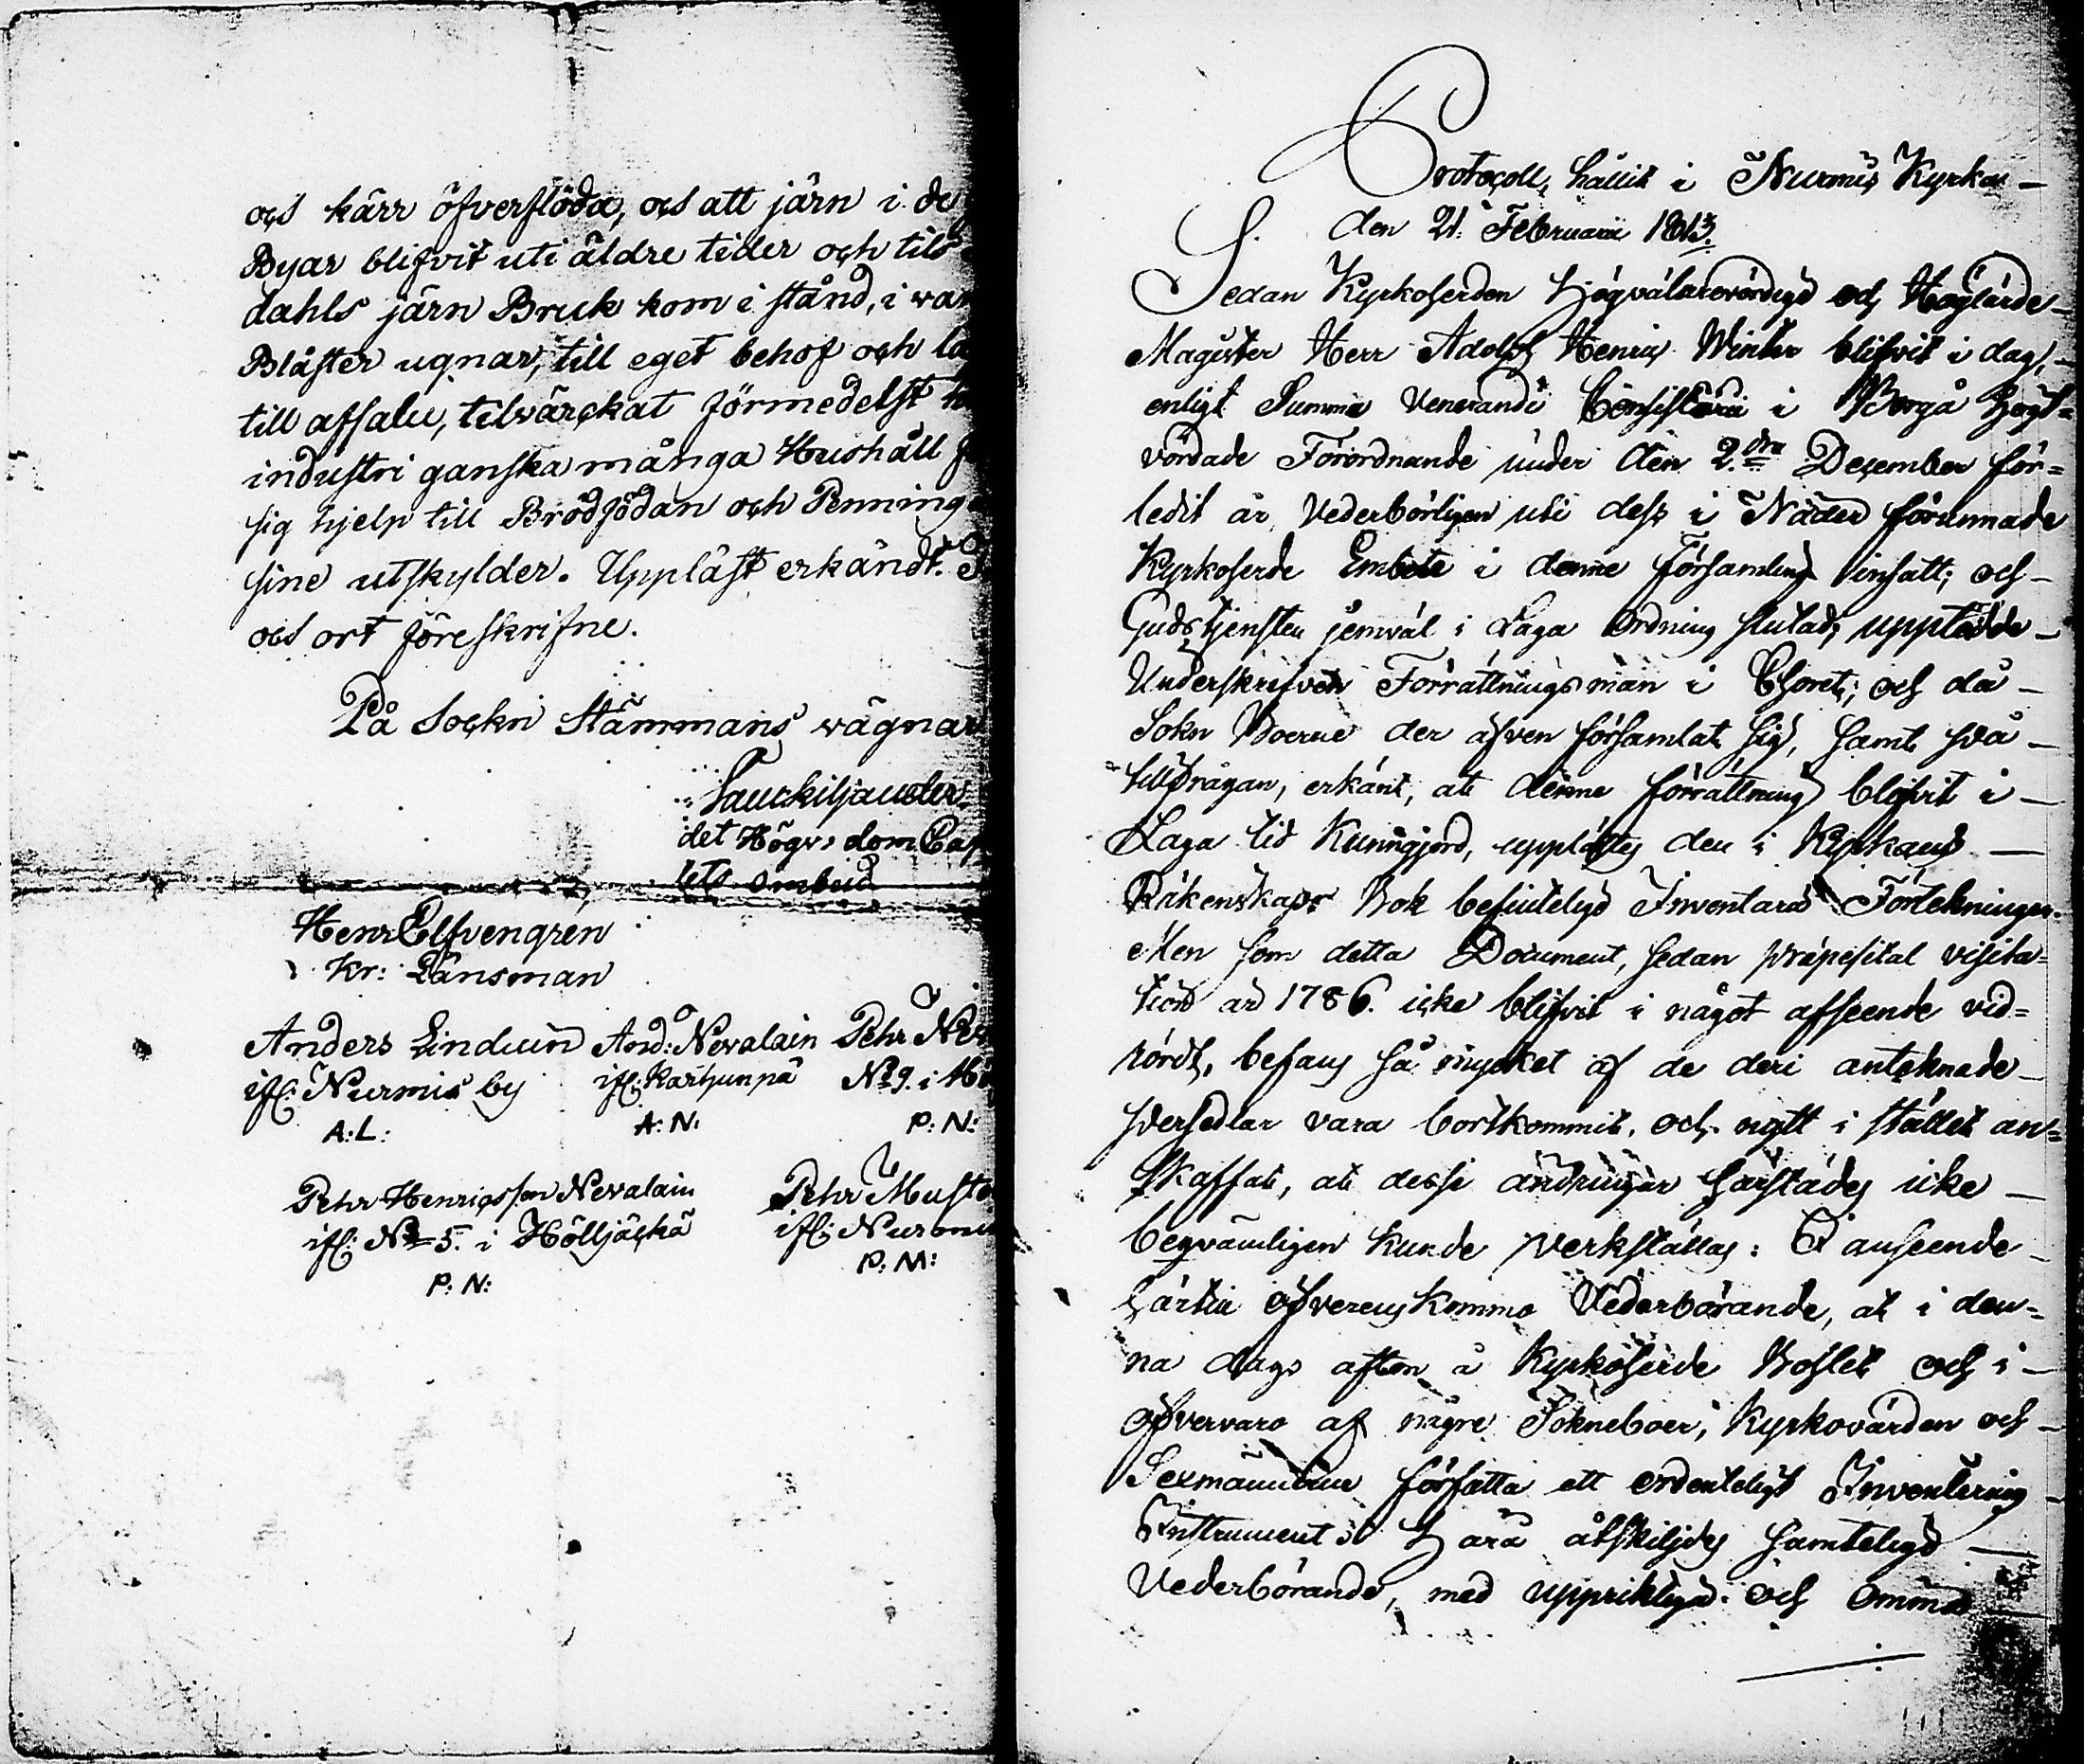 och kärr öfverflöda, och att järn i de
Byar blifvit uti äldre tider och tils
dahls järn Bruk kom i stånd, i war
Bläster ugnar, till eget behof och
till afsalu, tilvärckat förmedelst
industri ganska många Hushåll
sig hjelp till Brödfödan och Penning
sine utskylder. Uppläst erkändt.
och ort föreskrifne.
På Sockn Stämmans wägnar
det Högv: dom Cap
lets ombud
Henr Elfvengren
Kr: Länsman
Anders Linduin And: Nevalain Pehr Nev
ifr: Nurmis by ifr: Karhunpä No 9. i
A: L: A: N: P: N:
Pehr Henricsson Nevalain Pehr Musto
ifr: No 5. i Hölljäckä ifr: Nurmi
P: N: P: M:
Protocoll, hållit i Nurmis Kyrka
S. den 21. Februarii 1813.
Sedan Kyrkoherden Högvälärevördige och Höglärde
Magister Herr Adolph Henric Winter blifvit i dag,
enligt Summe Venerandi Consistorii i Borgå Högt=
vördade Förordnande under den 2.dra December för=
ledit år Vederbörligen uti dess i Nåder förunnade
Kyrkoherde Embete i denne Församling insatt; och
Gudstjensten jemväl i Laga Ordning slutad, uppträdde
Underskrifven Förrättningsman i Choret; och då
Sokn Boerne der äfven församlat sig, samt på
tillfrågan, erkänt, at denne förrättning blifvit i
Laga tid Kunngjord, upplästes den i Kyrkans
Räkenskaps Bok befintelige Inventarii Förtekningen.
Men som detta Document, sedan präpesital visita=
tion år 1786. icke blifvit i något afseende vid=
rördt, befans så mycket af de deri anteknade
persedlar vara bortkommit, och nytt i stället an=
skaffat, at desse ändringar härstädes icke
beqvämligen kunde verkställas: I anseende
härtill öfverenskommo Vederbörande, at i den=
na dags afton å Kyrkoherde Bohlet och i
öfvervaro af någre Sokneboer, Kyrkovärden och
Sexmännerne författa ett ordenteligt Inventering
Instrument: Härå åtskiljdes samtelige
Vederbörande, med uppriktige och ömma